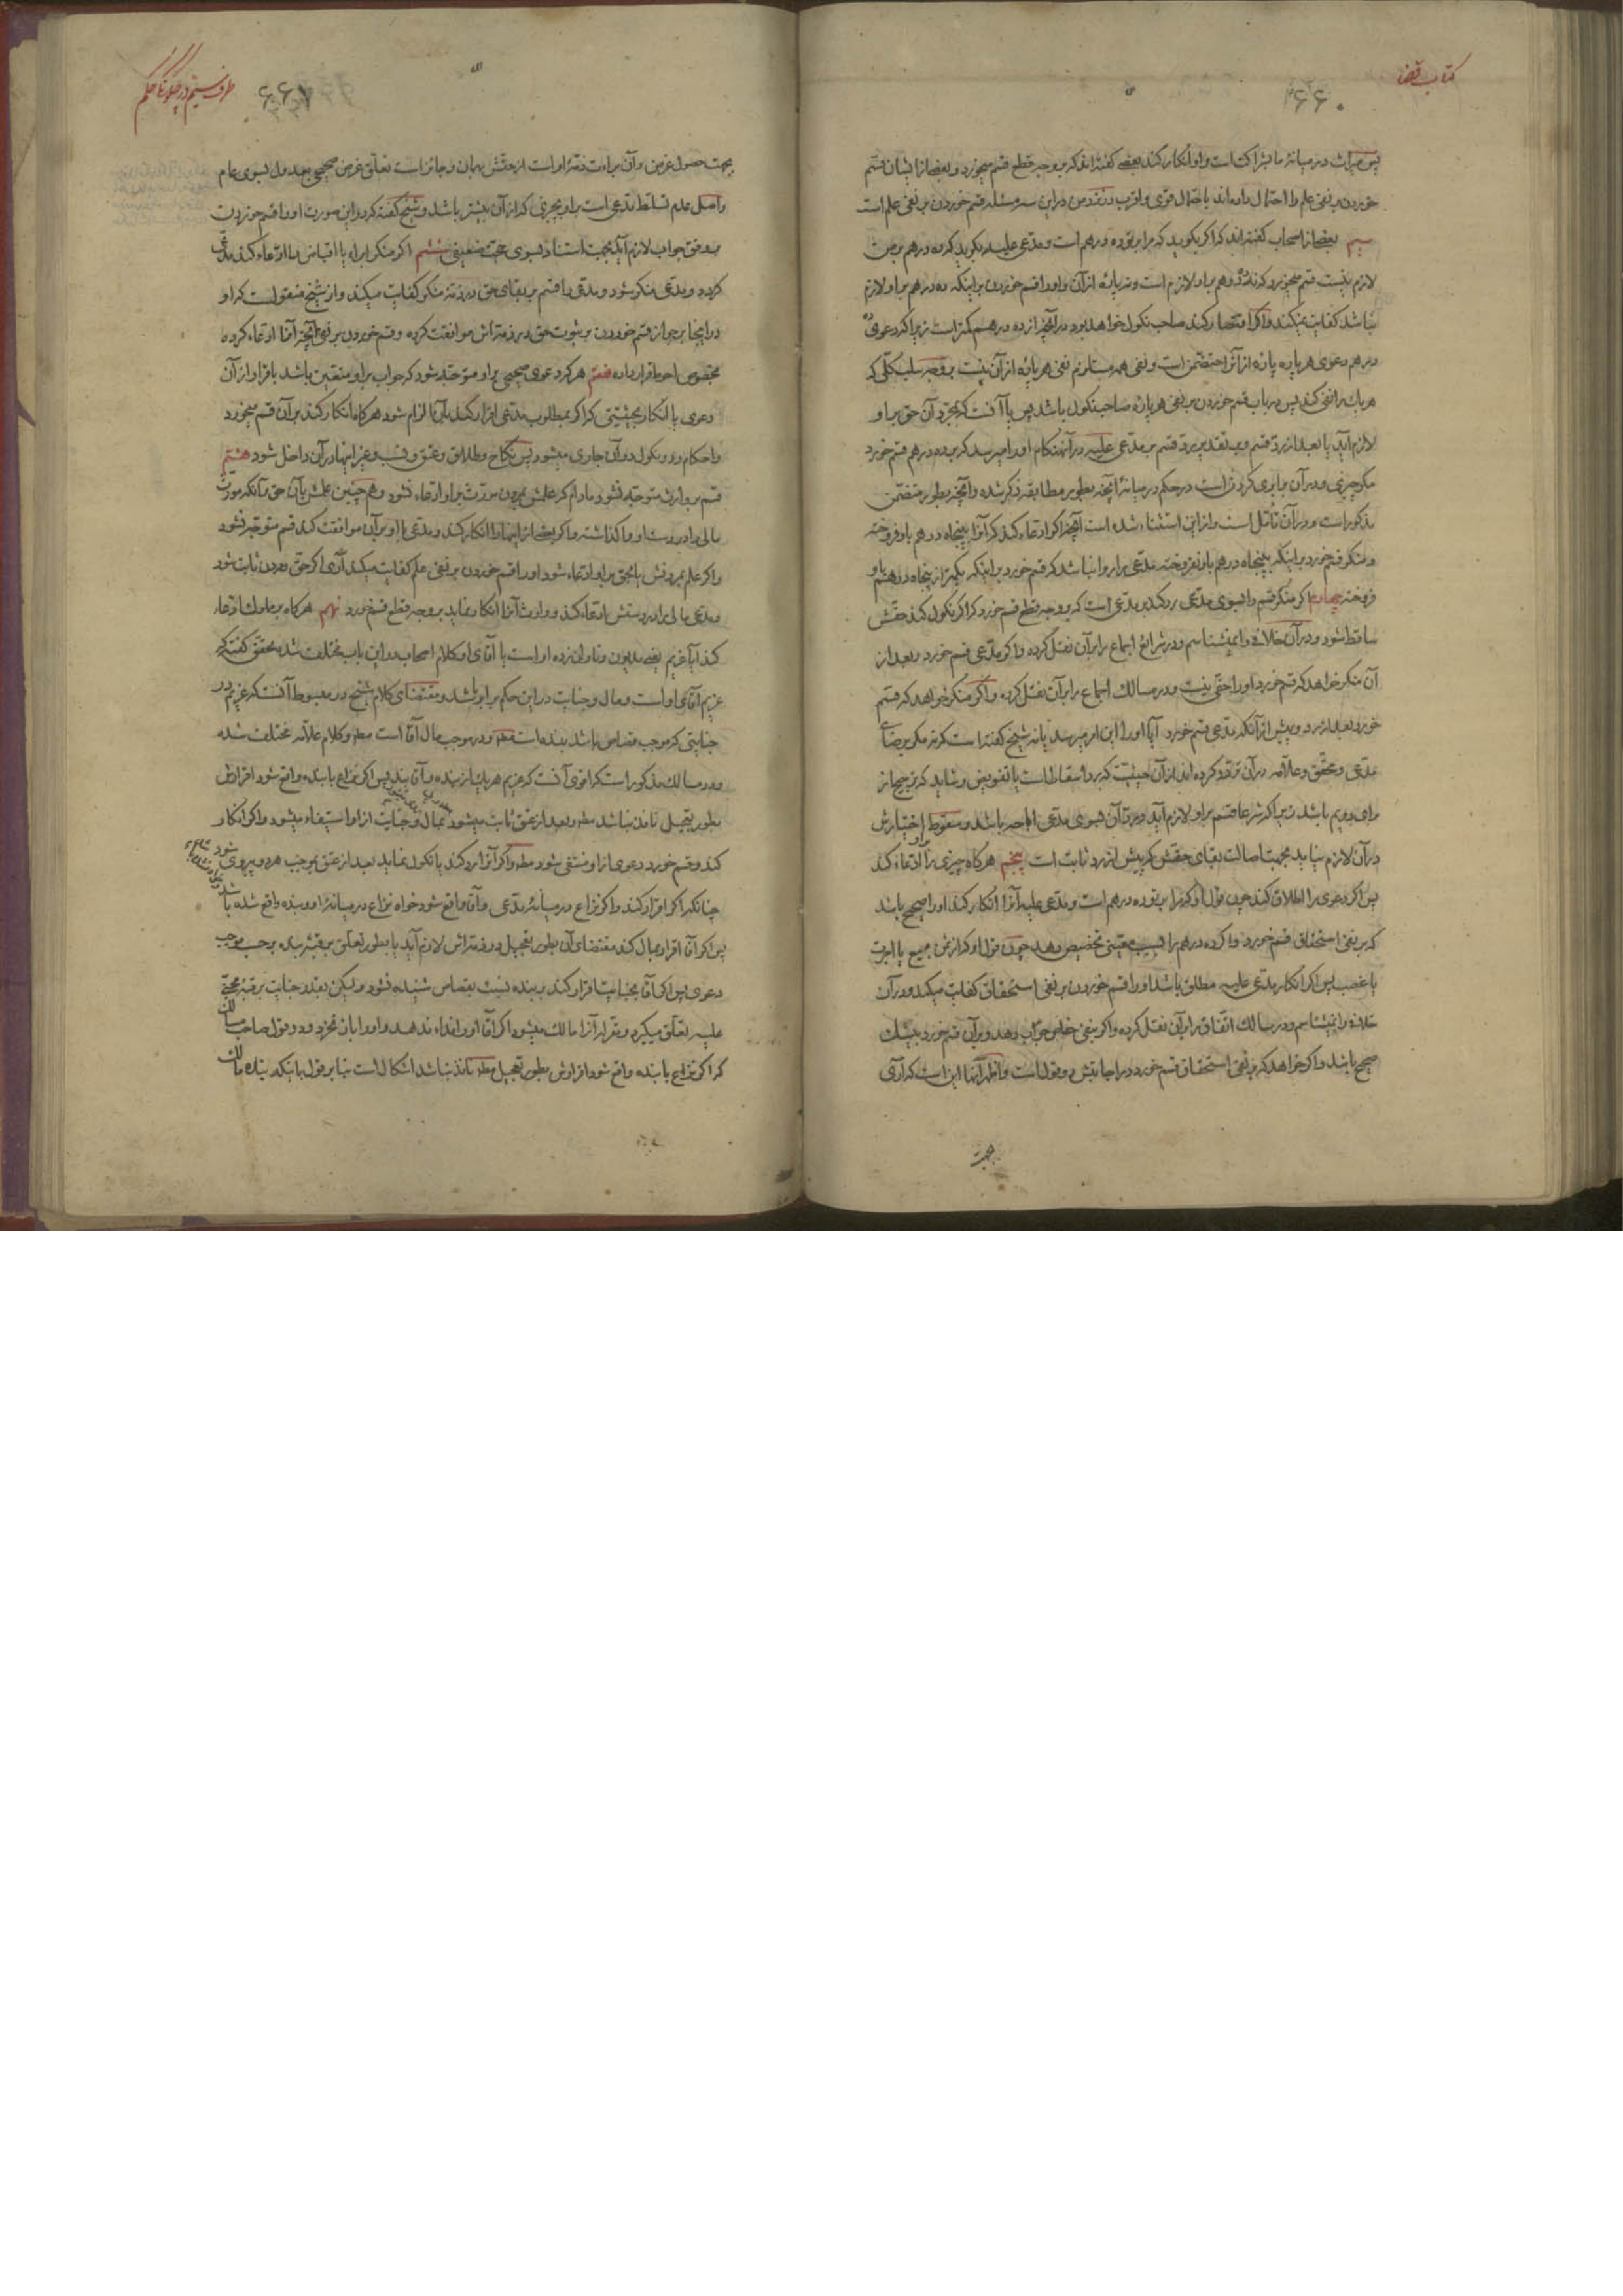 کتاب قضا
۶۶۰
پس میراث در میانهٔ ما بشراکت است و او انکار کند بعضی گفته‌اند که بر وجه قطع قسم میخورد و بعضی از ایشان قسم
خوردن بر نفی علم را احتمال داده‌اند باحتمال قوی و اقرب در نزد من در این سه مسئله قسم خوردن بر نفی علم است
سیم بعضی از اصحاب گفته‌اند که اگر بگوید که مرا بر تو ده درهم است و مدعی علیه بگوید که ده درهم بر من
لازم نیست قسم میخورد که نه ده درهم بر او لازم است و نه پارهٔ از آن و او را قسم خوردن بر اینکه ده درهم بر او لازم
نباشد کفایت نمیکند و اگر اقتصار کند صاحب نکول خواهد بود در آنچه از ده درهم کمتر است زیرا که دعوی ده
درهم دعوی هر پاره پاره از آنرا متضمن است و نفی همه مستلزم نفی هر پارهٔ از آن نیست بر وجه سلب کلی که
هر یک را نفی کند پس در باب قسم خوردن بر نفی هر پاره صاحب نکول باشد پس یا آنست که بمجرد آن حق بر او
لازم آید یا بعد از رد قسم و بتقدیر رد قسم بر مدعی علیه در آنهنگام او را میرسد که بر ده درهم قسم خورد
مگر چیزی و در آن برابری کردن است در حکم در میانهٔ آنچه بطور مطابقه ذکر شده و آنچه بطور متضمن
مذکور است و در آن تأمل است و از این استثناء شده است آنچه اگر ادعاء کند که آنرا بپنجاه درهم باو فروخته
و منکر قسم خورد بر اینکه بپنجاه درهم باو نفروخته مدعی را روا نباشد که قسم خورد بر اینکه بکمتر از پنجاه درهم باو
فروخته چهارم اگر منکر قسم را بسوی مدعی رد کند بر مدعی است که بر وجه قطع قسم خورد که اگر نکول کند حقش
ساقط شود و در آن خلافی را نمیشناسم و در شرائع اجماع را بر آن نقل کرده و اگر مدعی قسم خورد و بعد از
آن منکر خواهد که قسم خورد او را حقی نیست و در مسالک اجماع را بر آن نقل کرده و اگر منکر خواهد که قسم
خورد بعد از رد و پیش از آنکه مدعی قسم خورد آیا او را این امر میرسد یا نه شیخ گفته است که نه مگر برضای
مدعی و محقق و علامه در آن تردد کرده‌اند از آن حیثیت که رد اسقاط است یا تفویض و شاید که ترجیح از
برای دویم باشد زیرا که شرعا قسم بر او لازم آید و رد آن بسوی مدعی اباحه باشد و سقوط اختیارش
در آن لازم نیاید بجهت اصالت بقای حقش که پیش از رد ثابت است پنجم هرگاه چیزی را ادعاء کند
پس اگر دعوی را اطلاق کند چون قول او که مرا بر تو ده درهم است و مدعی علیه آنرا انکار کند او را صحیح باشد
که بر نفی استحقاق قسم خورد و اگر ده درهم را بسبب معینی تخصیص دهد چون قول او که از ثمن مبیع یا اجرت
یا غصب پس اگر انکار مدعی علیه مطلق باشد او را قسم خوردن بر نفی استحقاق کفایت میکند و در آن
خلافی را نمیشناسم و در مسالک اتفاق را بر آن نقل کرده و اگر بنفی خاص جواب دهد و بر آن قسم خورد بیشک
صحیح باشد و اگر خواهد که بر نفی استحقاق قسم خورد در اجابتش دو قول است و اظهر آنها این است که آری
بجهت
طرف سیم در چگونگی حکم
۶۶۱
بجهت حصول غرض و آن براءت ذمهٔ او است از حقش بهمان و جائز است تعلق غرض صحیحی بعدول بسوی عام
و اصل عدم تسلط مدعی است بر او بچیزی که از آن بیشتر باشد و شیخ گفته که در این صورت او را قسم خوردن
بر وفق جواب لازم آید بجهت استناد بسوی حجت ضعیفی ششم اگر منکر ابراء یا اقباض را ادعاء کند مدعی
گردد و مدعی منکر شود و مدعی را قسم بر بقای حق در ذمهٔ منکر کفایت میکند و از شیخ منقول است که او
در اینجا بر جواز قسم خوردن بر ثبوت حق در ذمه‌اش موافقت کرده و قسم خوردن بر نفی آنچه آنرا ادعاء کرده
بخصوص احوط قرار داده هفتم هر که دعوی صحیحی بر او متوجه شود که جواب بر او متعین باشد باقرار از آن
دعوی یا انکار بحیثیتی که اگر بمطلوب مدعی اقرار کند بآن الزام شود هرگاه انکار کند بر آن قسم میخورد
و احکام رد و نکول در آن جاری میشود پس نکاح و طلاق و عتق و نسب و غیر اینها در آن داخل شود هشتم
قسم بر وارث متوجه نشود مادام که علمش بمردن مورث بر او ادعاء نشود و همچنین علمش بآن حق و آنکه مورث
مالی را در دست او واگذاشته و اگر بعضی از اینها را انکار کند و مدعی با او بر آن موافقت کند قسم متوجه نشود
و اگر علم بمردنش یا بحق بر او ادعاء شود او را قسم خوردن بر نفی علم کفایت میکند آری اگر حق و مردن ثابت شود
و مدعی مالی را در دستش ادعاء کند و وارث آنرا انکار نماید بر وجه قطع قسم خورد نهم هرگاه بر مملوک ادعاء
کند آیا غریم یعنی مدیون و تاوان زده او است یا آقای او کلام اصحاب در این باب مختلف شده محقق گفته که
غریم آقای او است و مال و جنایت در این حکم برابر باشد و مقتضای کلام شیخ در مبسوط آنست که غریم در
جنایتی که موجب قصاص باشد بنده است مطه و در موجب مال آقا است مطه و کلام علامه مختلف شده
و در مسالک مذکور است که اقوی آنست که غریم هر یک از بنده و آقایند پس اگر نزاع با بنده واقع شود اقرارش
بطور تعجیل نافذ نباشد مطه و بعد از عتق ثابت میشود بمال و جنایت از او استیفاء میشود و اگر انکار
کند و قسم خورد دعوی از او منتفی شود مطه و اگر آنرا رد کند یا نکول نماید بعد از عتق بموجب هر دو پیروی شود
چنانکه اگر اقرار کند و اگر نزاع در میانهٔ مدعی و آقا واقع شود خواه نزاع در میانهٔ او و بنده واقع شده باشد
پس اگر آقا اقرار بمال کند مقتضای آن بطور تعجیل در ذمه‌اش لازم آید یا بطور تعلق برقبهٔ بنده بر حسب موجب
دعوی پس اگر آقا بجنایت اقرار کند بر بنده نسبت بقصاص شنیده نشود ولیکن بقدر جنایت برقبهٔ مجنی
علیه تعلق میگیرد و مقر له آنرا مالک میشود اگر آقا او را فداء ندهد و او را باز نخرد و در قول صاحب مسالک
که اگر نزاع با بنده واقع شود اقرارش بطور تعجیل مطه نافذ نباشد اشکال است بنا بر قول باینکه بنده مالک